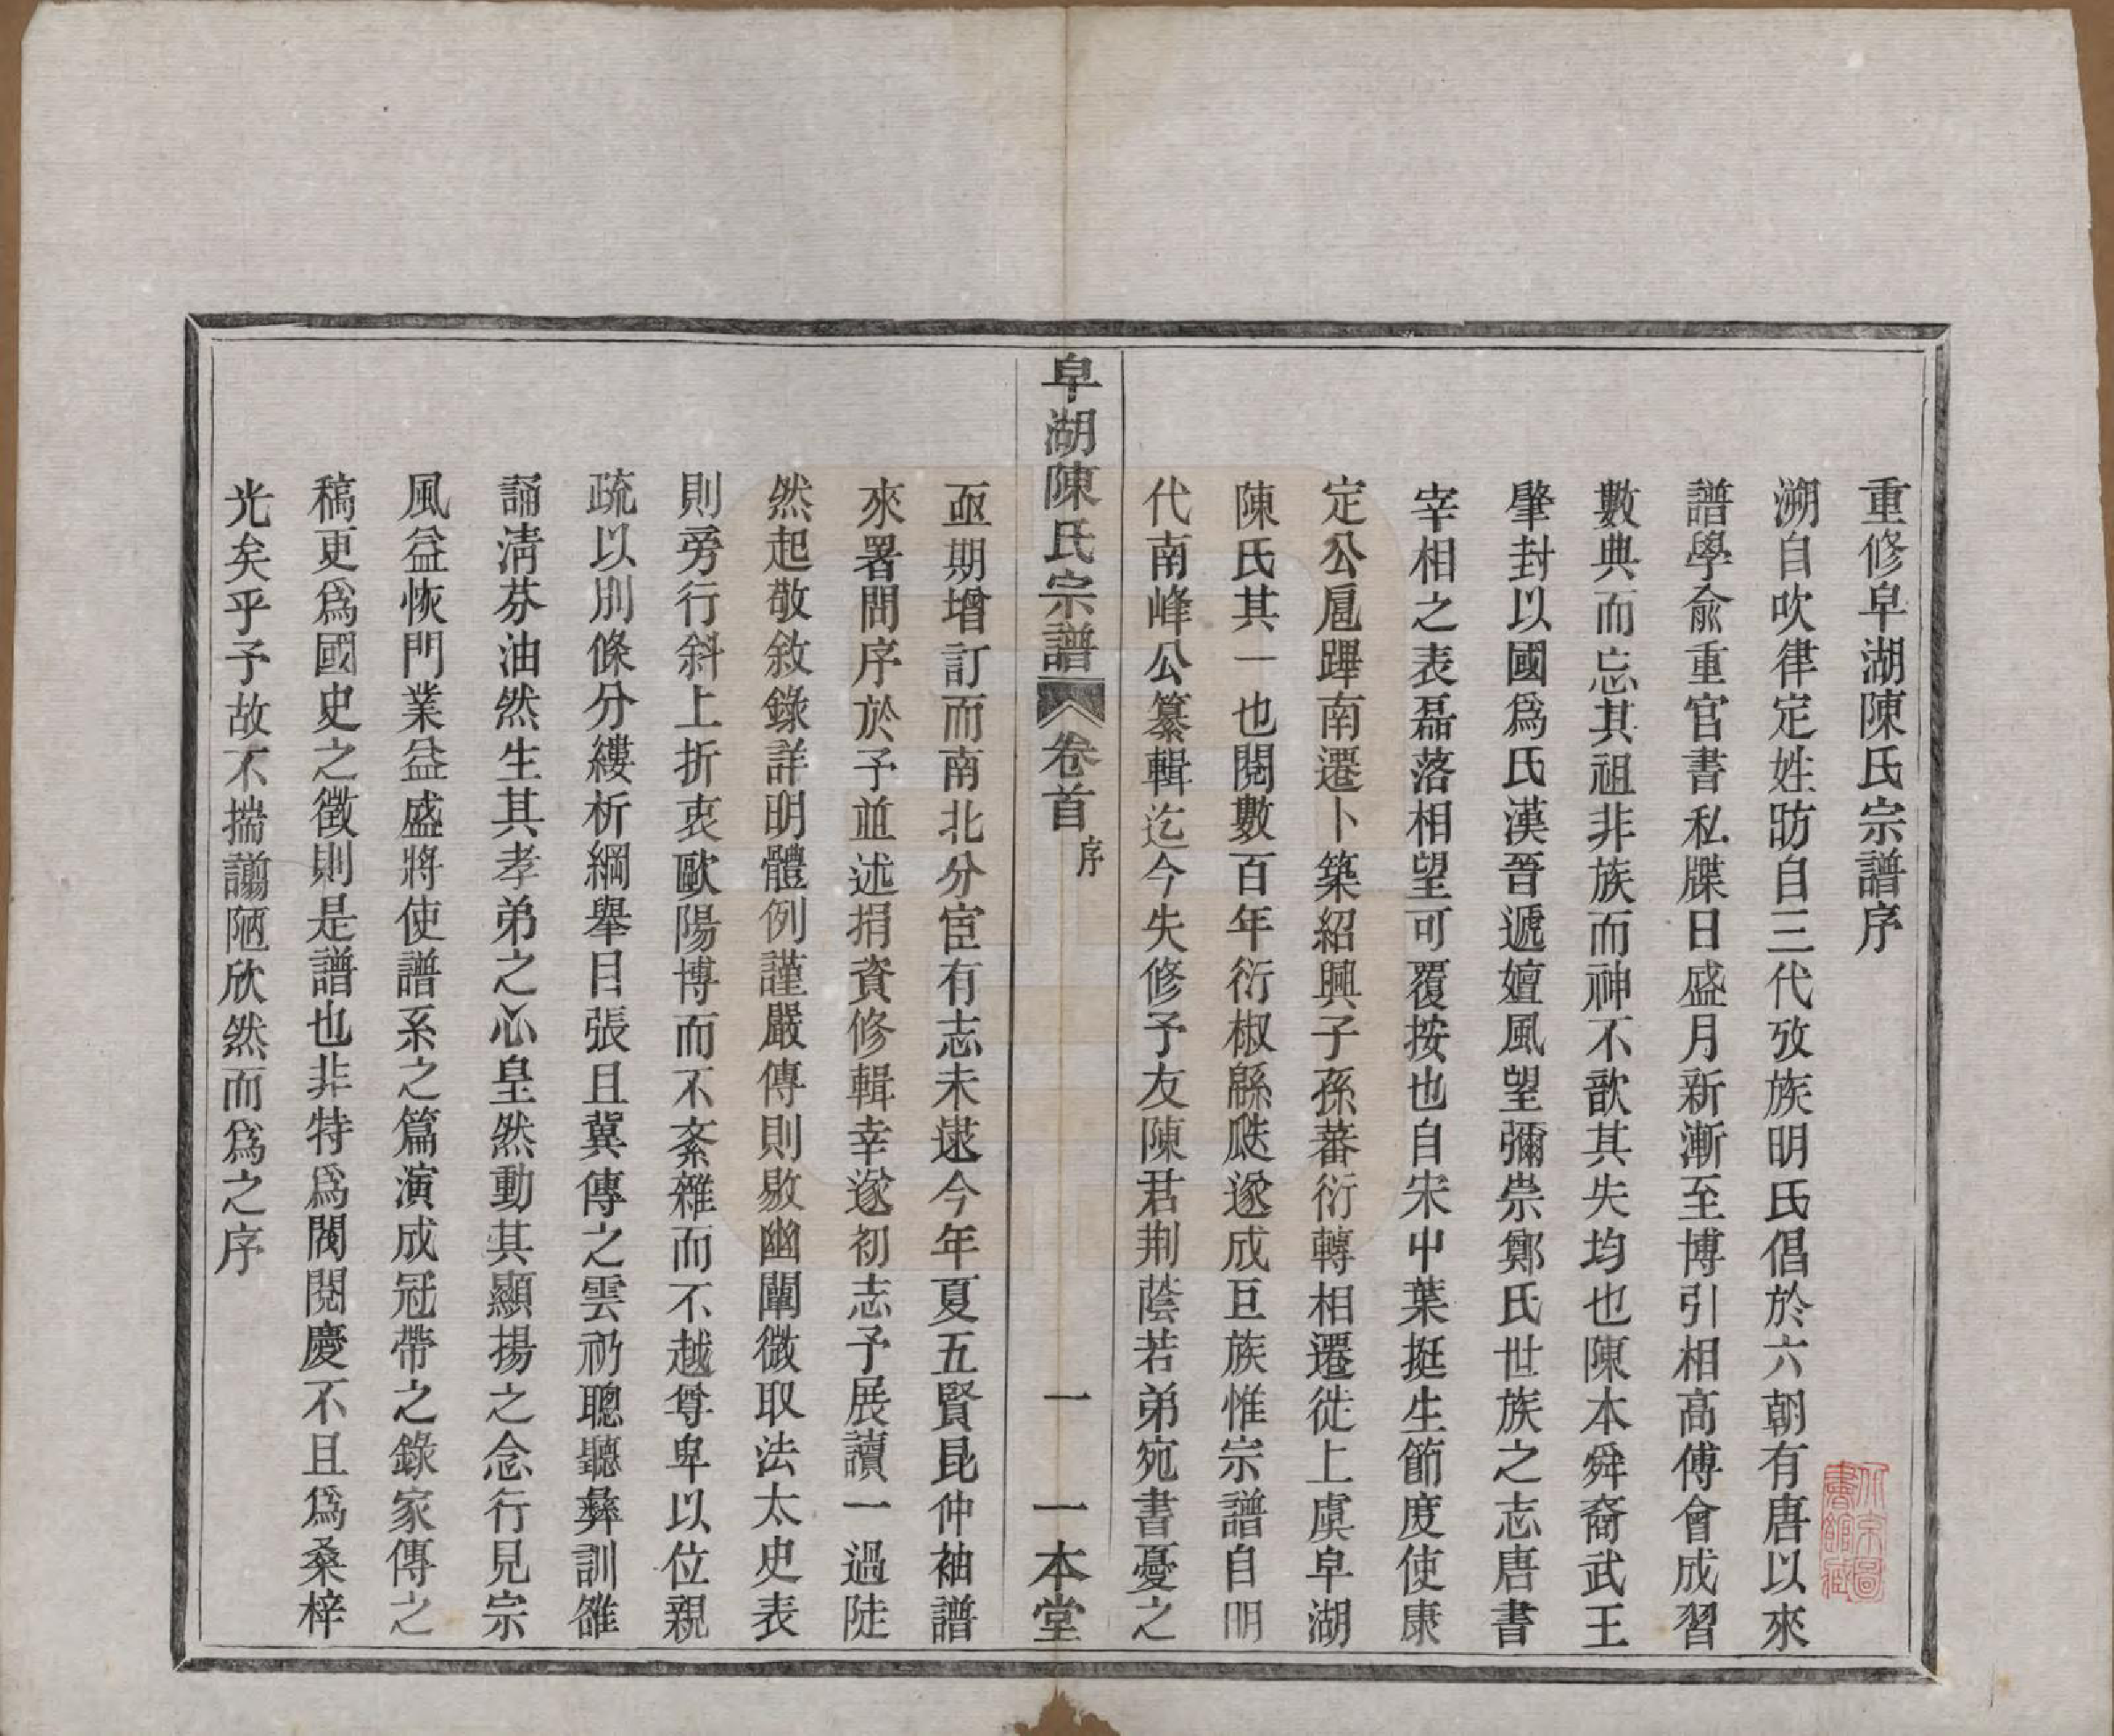 重修阜湖陳氏宗譜序
溯自吹律定姓昉自三代攷族明氏倡於六朝有唐以來
譜學兪重官書私牒日盛月新漸至博引相高傅會成習
數典而忘其祖非族而神不歆其失均也陳本舜裔武王
肇封以國爲氏漢晉遞嬗風望彌崇鄭氏世族之志唐書
宰相之表磊落相望可覆按也自宋中葉挺生節度使康
定公扈蹕南遷卜築紹興子孫蕃衍轉相遷徙上虞阜湖
陳氏其一也閱數百年衍椒緜瓞遂成巨族惟宗譜自明
代南峰公纂輯迄今失修予友陳君荆蔭若弟宛書憂之
阜湖陳氏宗譜 卷首 序 一 一本堂
亟期增訂而南北分宦有志未逮今年夏五賢昆仲袖譜
來署問序於予並述捐資修輯幸遂初志予展讀一過陡
然起敬敘錄詳明體例謹嚴傳則敭幽闡微取法太史表
則旁行斜上折衷歐陽博而不紊雜而不越尊卑以位親
疏以別條分縷析綱舉目張且冀傳之雲礽聰聽彝訓雒
誦淸芬油然生其孝弟之心皇然動其顯揚之念行見宗
風益恢門業益盛將使譜系之篇演成冠帶之錄家傳之
稿更爲國史之徵則是譜也非特爲閥閱慶不且爲桑梓
光矣乎予故不揣譾陋欣然而爲之序